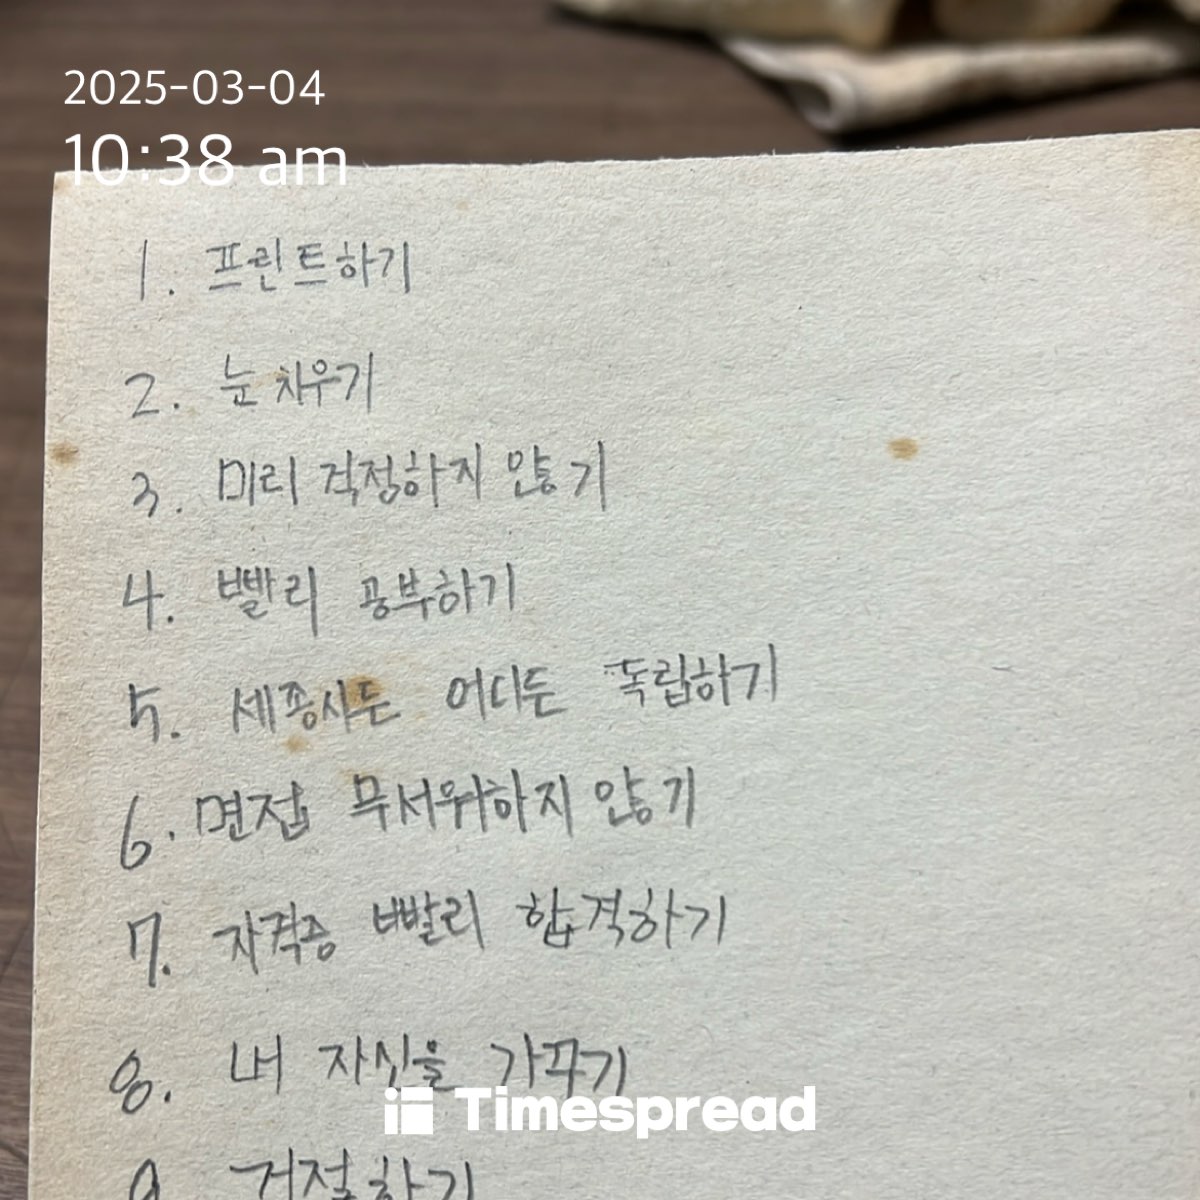 2025-03-04
10:38 am
1. 프린트하기
2. 눈 치우기
3. 미리 걱정하지 않기
4. 빨리 공부하기
5. 세종시든 어디든 독립하기
6. 면접 무서워하지 않기
7. 자격증 빨리 합격하기
8. 내 자신을 가꾸기
Timespread
9 거절하기